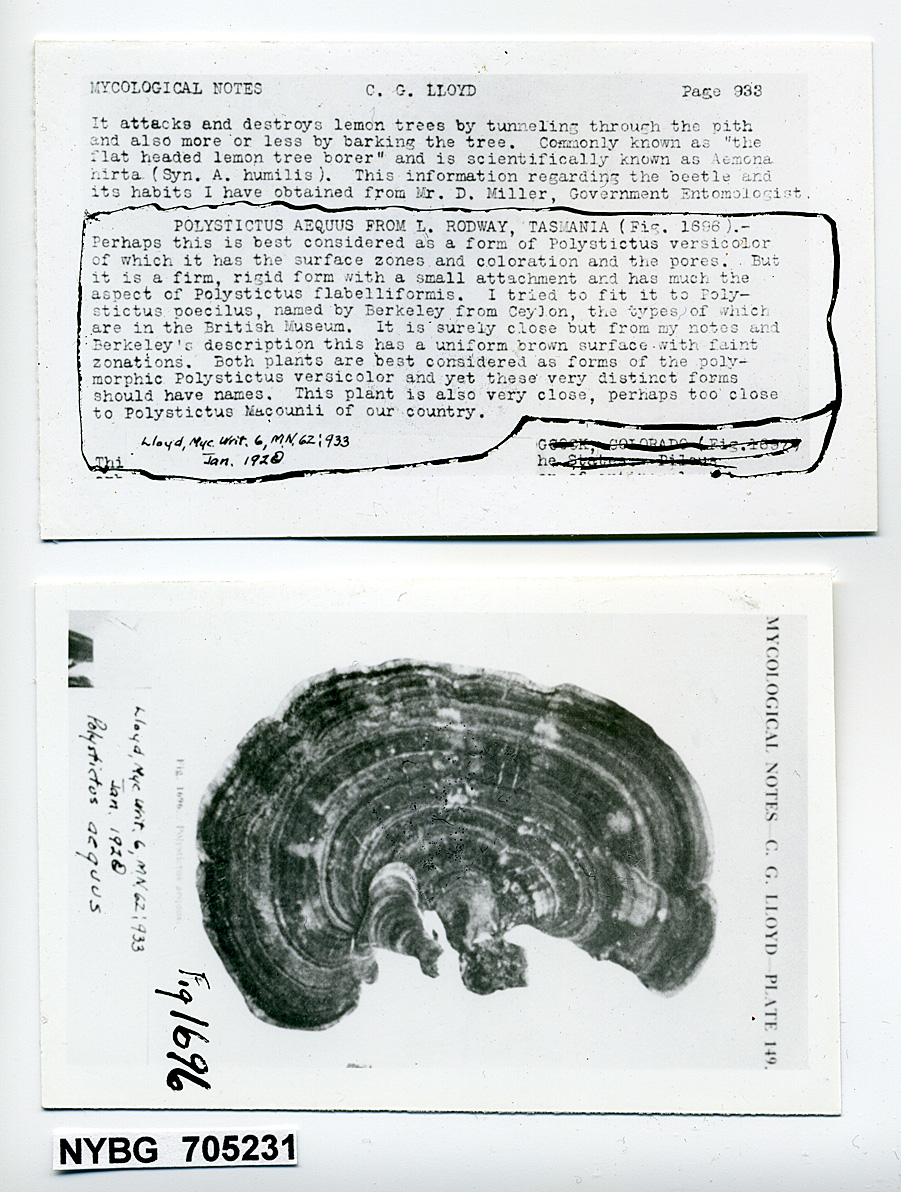 MYCOLOGICAL NOTES C. G. LLOYD Page 933
It attacks and destroys lemon trees by tunneling through the pith
and also more or less by barking the tree. Commonly known as "the
flat headed lemon tree borer" and is scientifically known as Aemona
hirta (Syn. A. humilis). This information regarding the beetle and
its habits I have obtained from Mr. D. Miller, Government Entomologist.
POLYSTICTUS AEQUUS FROM L. RODWAY, TASMANIA (Fig. 1696).-
Perhaps this is best considered as a form of Polystictus versicolor
of which it has the surface zones and coloration and the pores. But
it is a firm, rigid form with a small attachment and has much the
aspect of Polystictus flabelliformis. I tried to fit it to Poly-
stictus poecilus, named by Berkeley from Ceylon, the types of which
are in the British Museum. It is surely close but from my notes and
Berkeley's description this has a uniform brown surface with faint
zonations. Both plants are best considered as forms of the poly-
morphic Polystictus versicolor and yet these very distinct forms
should have names. This plant is also very close, perhaps too close
to Polystictus Macounii of our country.
Lloyd, Myc. Writ. 6, M.N. 62:933
Jan. 1920
COLORADO (Fig. 1697)
Thi he States. Pileus
MYCOLOGICAL NOTES—C. G. LLOYD—PLATE 149.
Fig. 1696. Polystictus aequus
Fig 1696
Lloyd, Myc. Writ. 6, M.N. 62:933
Jan. 1920
Polystictus aequus
NYBG 705231